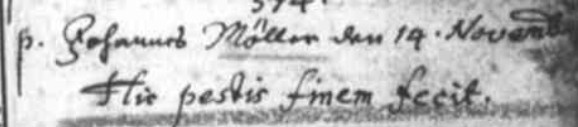 574.
p. Johannes Möller den 14. Novemb
Hic pestis finem fecit.